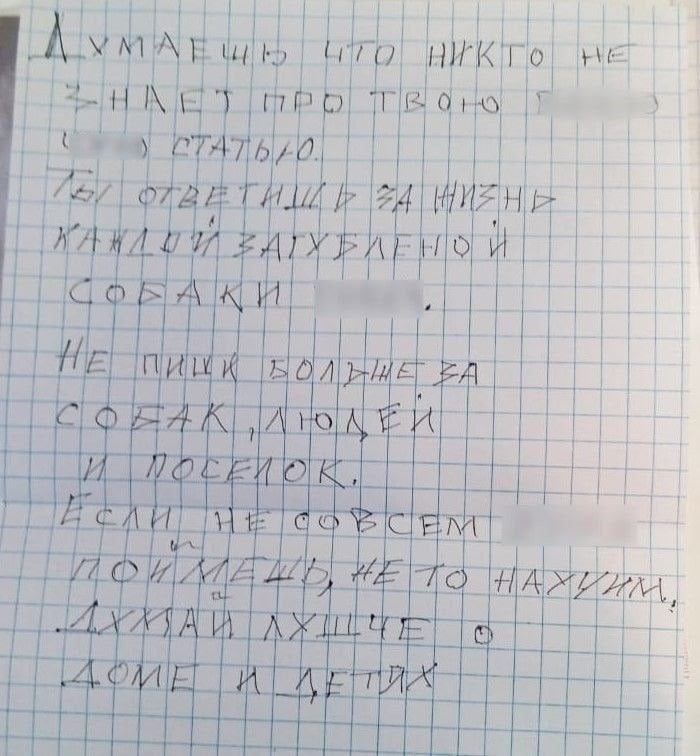 Думаешь что никто не
знает про твою
статью.
Ты ответишь за жизнь
каждой загубленой
собаки .
Не пиши больше за
собак, людей
и поселок.
Если не совсем
поймешь, не то нахуим.
Думай лушче о
доме и детях